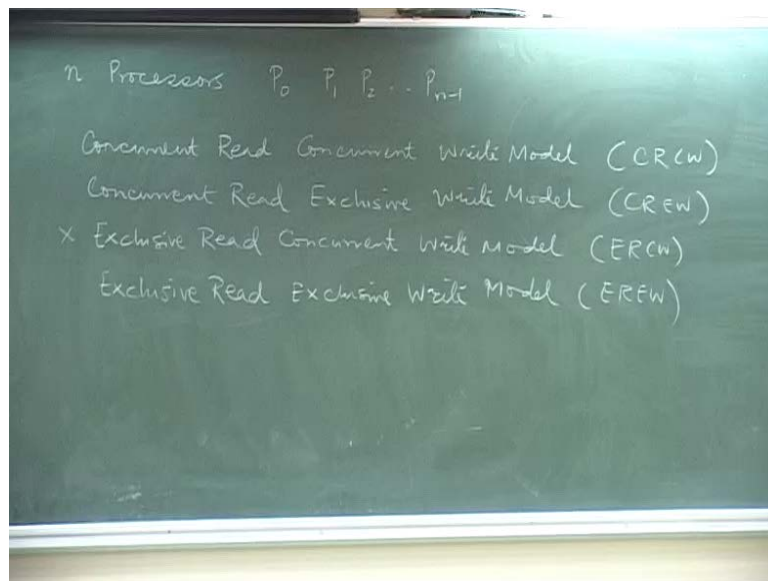 n Processors P₀ P₁ P₂ .. Pₙ₋₁
Concurrent Read Concurrent Write Model (CRCW)
Concurrent Read Exclusive Write Model (CREW)
× Exclusive Read Concurrent Write Model (ERCW)
Exclusive Read Exclusive Write Model (EREW)